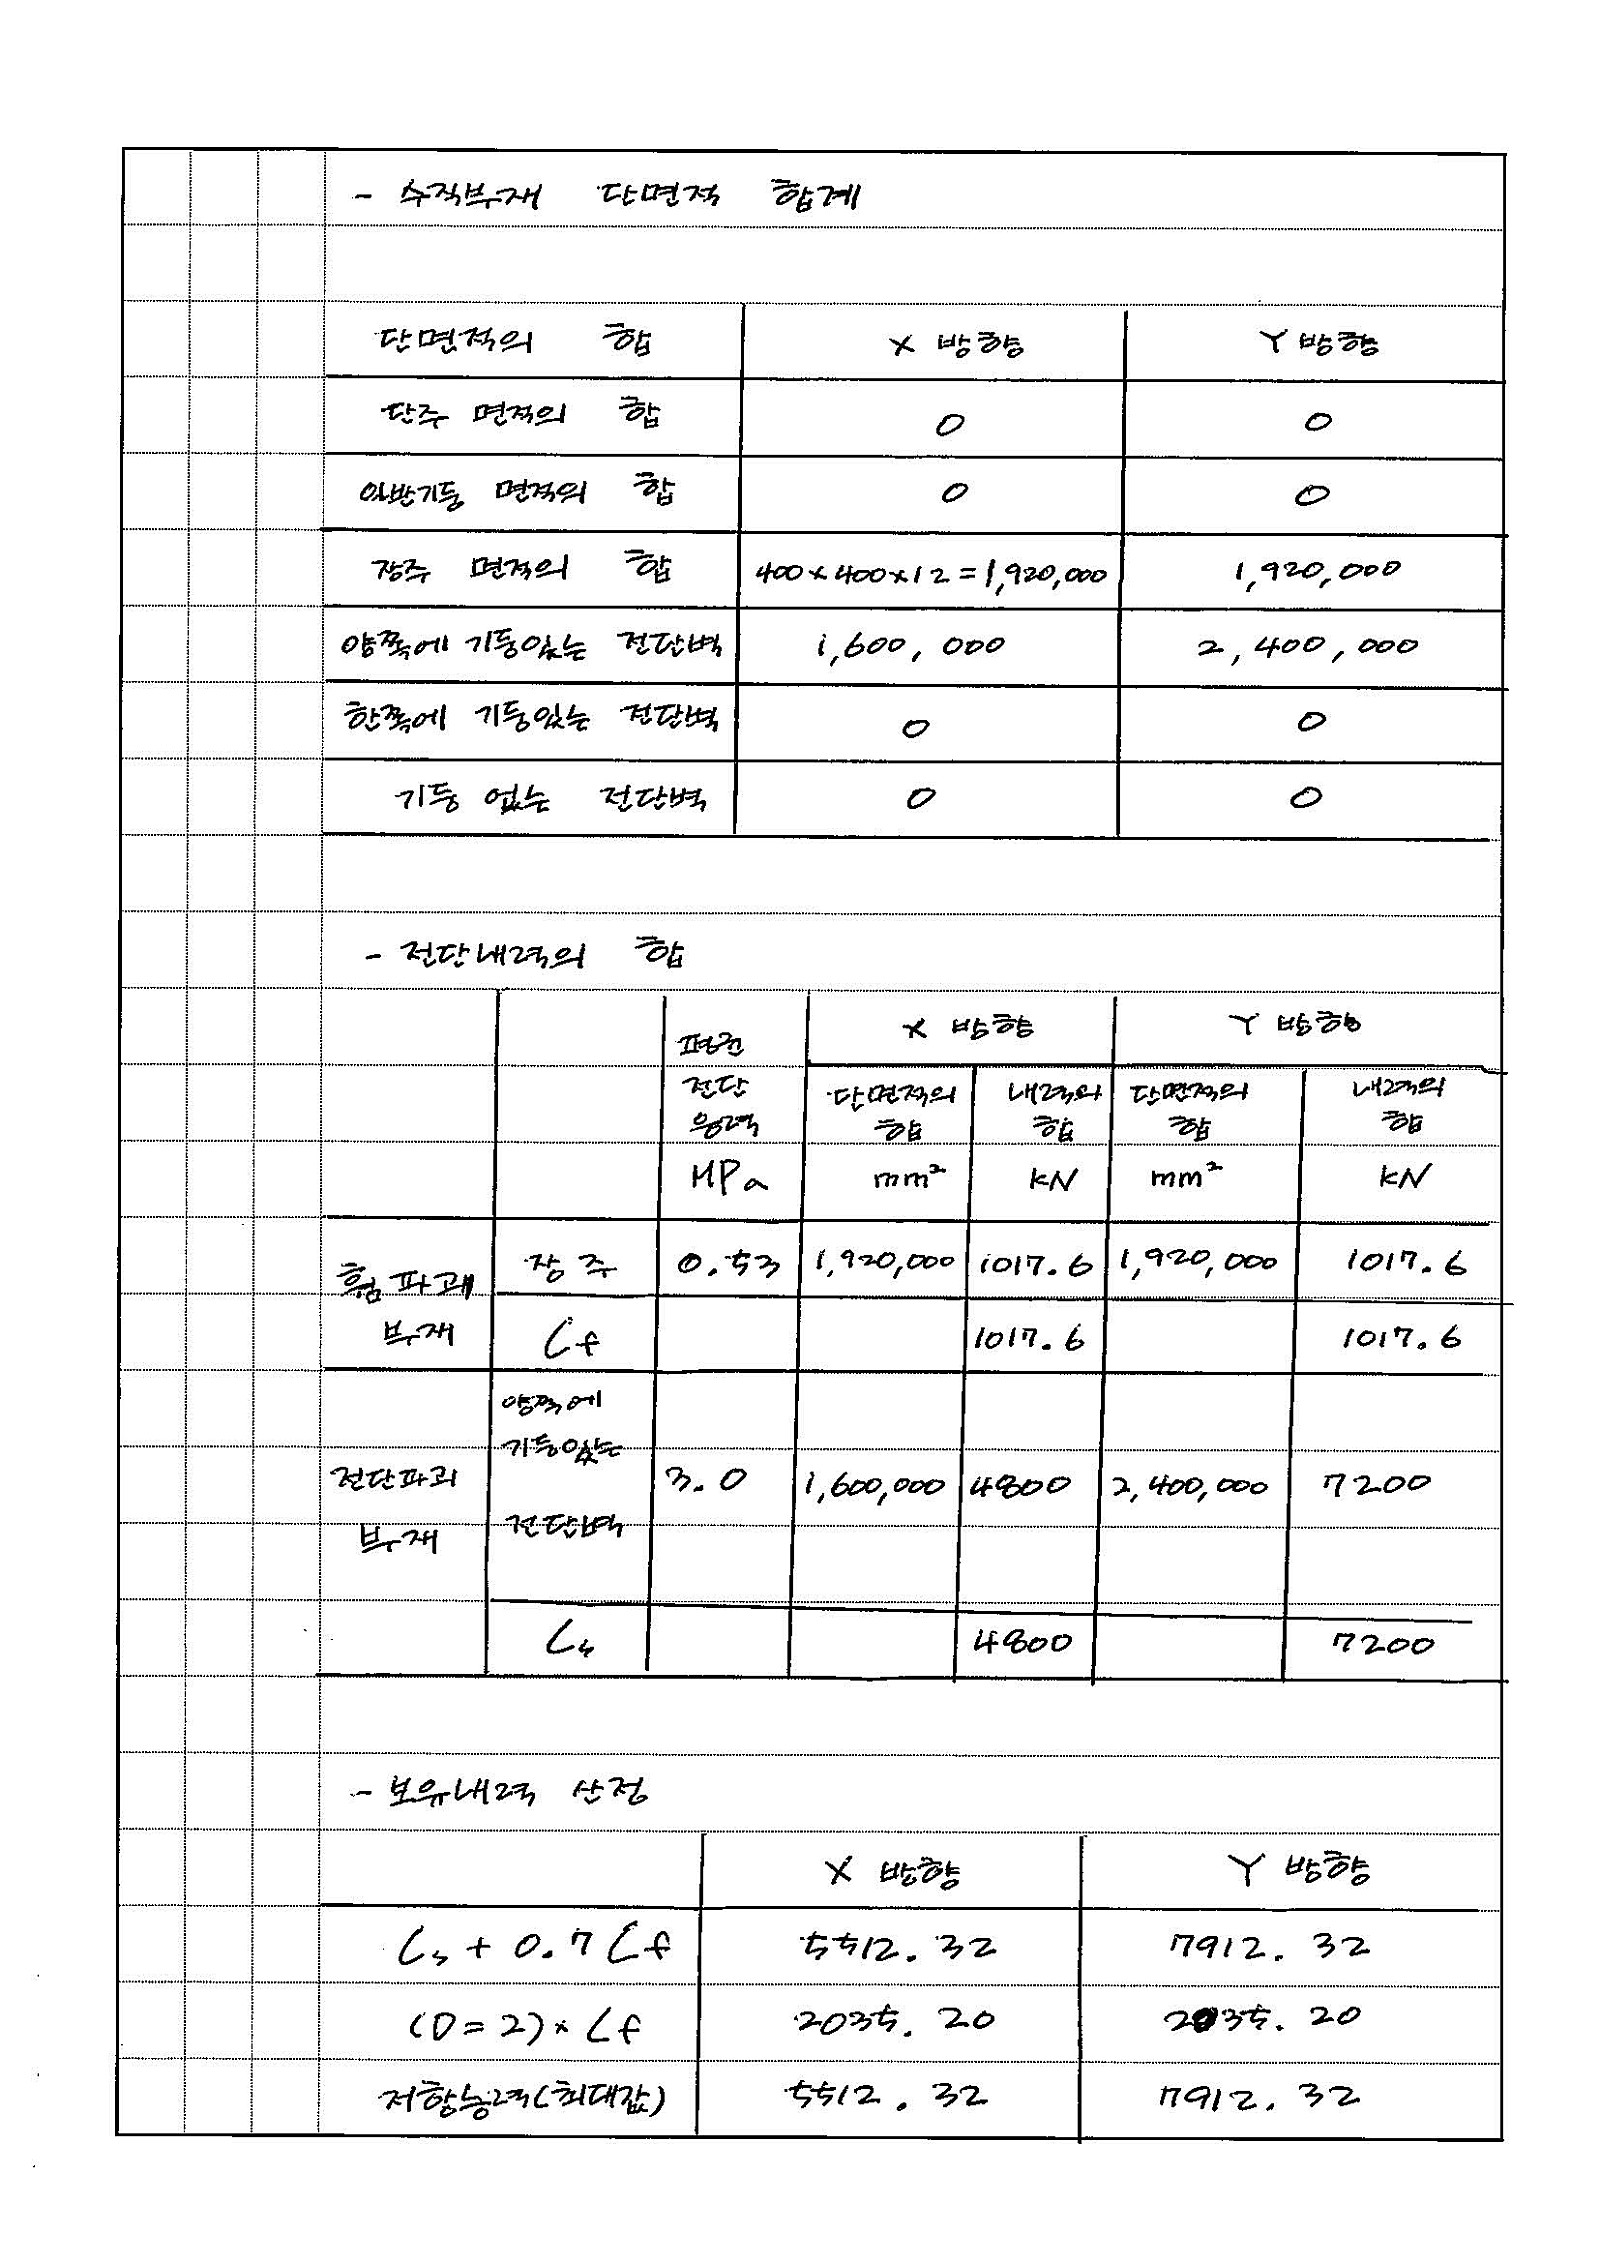 - 수직부재 단면적 합계
단면적의 합 X 방향 Y 방향
단주 면적의 합 0 0
일반기둥 면적의 합 0 0
장주 면적의 합 400×400×12=1,920,000 1,920,000
양쪽에 기둥있는 전단벽 1,600,000 2,400,000
한쪽에 기둥있는 전단벽 0 0
기둥 없는 전단벽 0 0
- 전단내력의 합
평균 전단 응력 X 방향 Y 방향
단면적의 합 내력의 합 단면적의 합 내력의 합
MPa mm² kN mm² kN
휨파괴 부재 장주 0.53 1,920,000 1017.6 1,920,000 1017.6
Cf 1017.6 1017.6
전단파괴 부재 양쪽에 기둥있는 전단벽 3.0 1,600,000 4800 2,400,000 7200
Cs 4800 7200
- 보유내력 산정
X 방향 Y 방향
Cs + 0.7 Cf 5512.32 7912.32
(D=2)× Cf 2035.20 2035.20
저항능력(최대값) 5512.32 7912.32